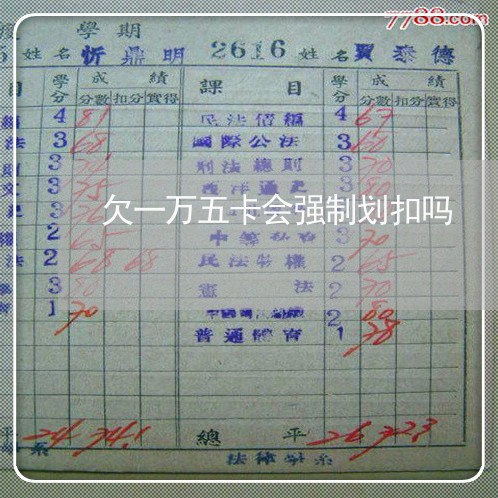 7788.com
學期
姓名 忻鼎明 2616 姓名 賈泰德
目 學分 成績 課目 學分 成績
分數 扣分 實得 分數 扣分 實得
4 81 民法債編 4 67
法 3 68 國際公法 3 60
3 刑法總則 3 70
3 75 西洋通史 3 80
欠一万五卡会强制划扣吗
2 65 3 70
法 2 68 68 民法物權 2 65
3 80 憲法 2 70
1 70 2 80
普通體育 1 78
平 24 74.1 總平 26 72.3
系 法律學系